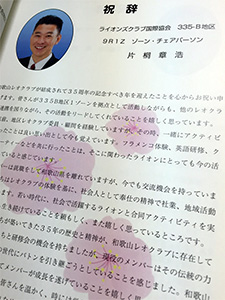 祝辞
ライオンズクラブ国際協会 335-B地区
9R1Z ゾーン・チェアパーソン
片桐章浩
歌山レオクラブが結成されて35周年の記念すべき年を迎えたことを心からお祝い申
げます。皆さんが335B地区1ゾーンを拠点として活動しながらも、他のレオクラ
範を示しており、その活動をリードしてくれていることを嬉しく思っています。
前、地区レオクラブ委員・顧問を経験していますが、その時、一緒にアクティビ
たことは良い思い出として今も覚えています。フラメンコ体験、英語研修、ク
ーティーなどを共に行ったことは、そこに関わったライオンにとっても今の活
ていると感じています。
ーは異動をして和歌山県を離れていますが、今でも交流機会を持っていま
ちはレオクラブの体験を基に、社会人として奉仕の精神で社業、地域活動
ます。若い時代に、社会で活躍するライオンと合同アクティビティを実
を続けていることを願もしく、また嬉しく思っているところです。
ちが築いてきた35年の歴史と精神が、和歌山レオクラブに存在して
ちと研修会の機会を持ちましたが、現役のメンバーはその伝統の力
の世代にバトンを引き継ごうとしていることを感じました。
てメンバーが成長を遂げていることを嬉しく思います。和歌山
皆さんを温かく、時には